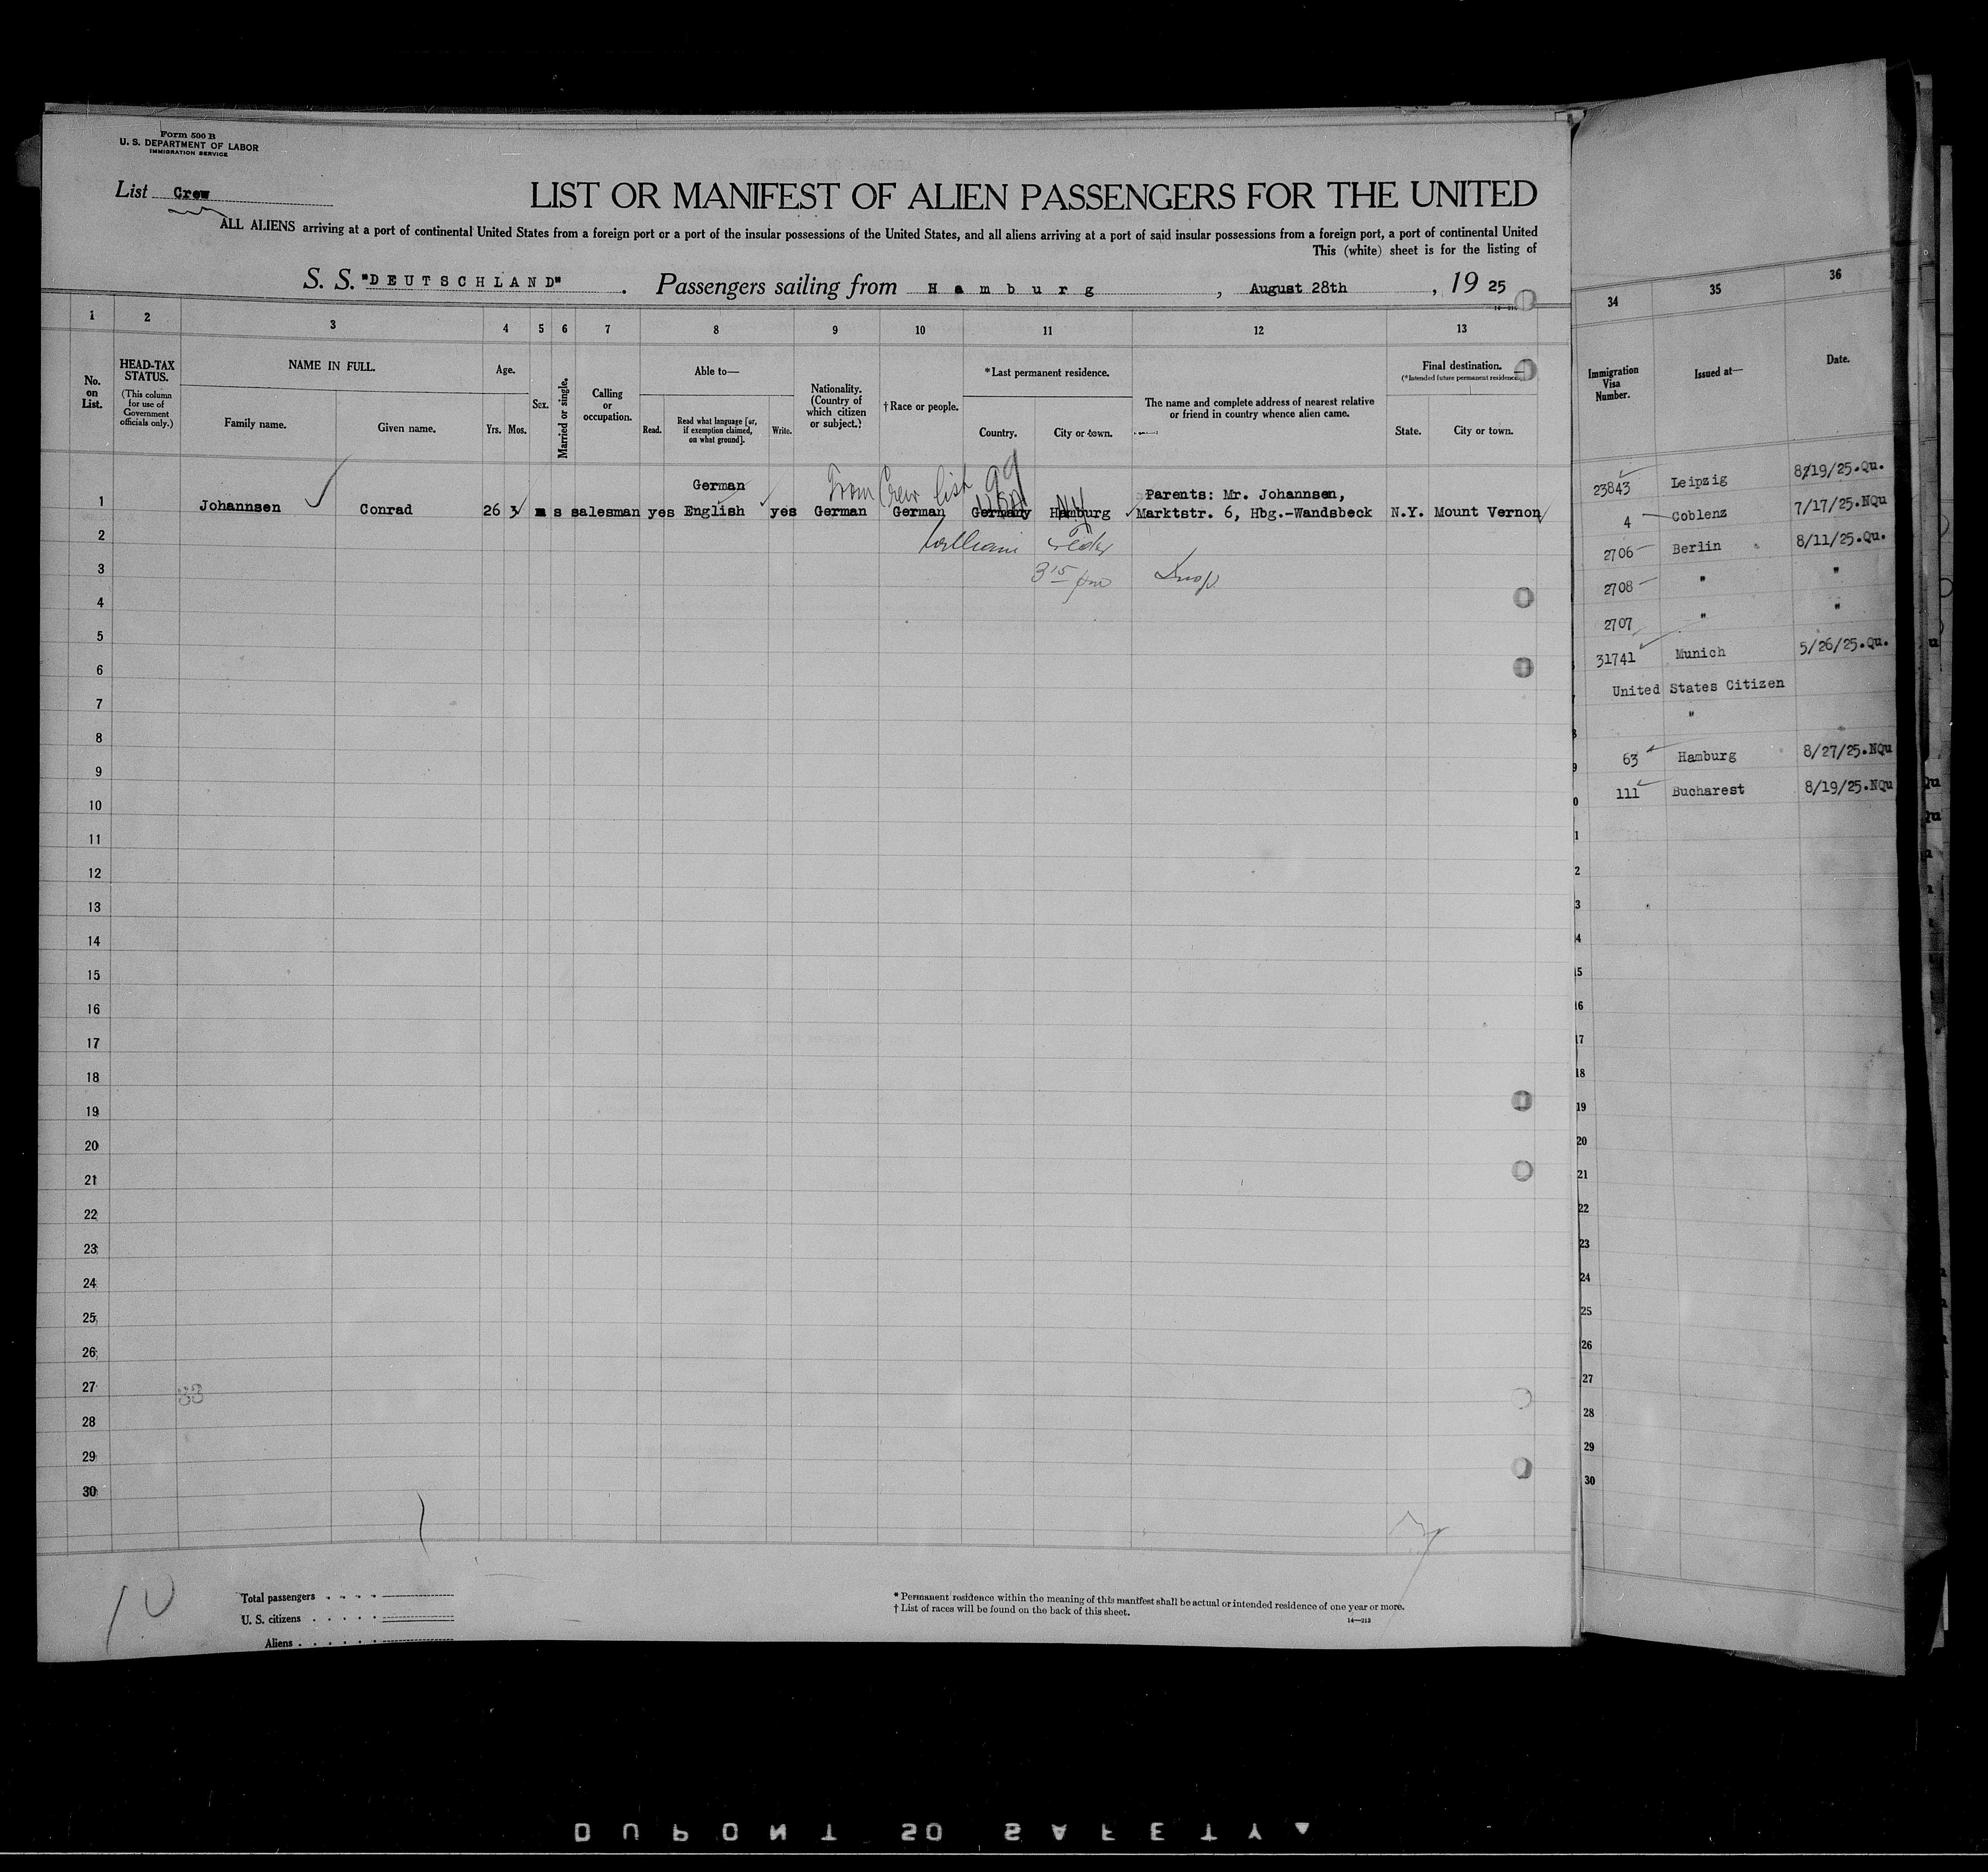 Form 500 B
U. S. DEPARTMENT OF LABOR
IMMIGRATION SERVICE
List Crew
LIST OR MANIFEST OF ALIEN PASSENGERS FOR THE UNITED
ALL ALIENS arriving at a port of continental United States from a foreign port or a port of the insular possessions of the United States, and all aliens arriving at a port of said insular possessions from a foreign port, a port of continental United
This (white) sheet is for the listing of
S. S. "DEUTSCHLAND" . Passengers sailing from Hamburg , August 28th , 19 25
1 2 3 4 5 6 7 8 9 10 11 12 13
No. on List.
HEAD-TAX STATUS.
(This column for use of Government officials only.)
NAME IN FULL.
Family name. Given name.
Age.
Yrs. Mos.
Sex.
Married or single.
Calling or occupation.
Able to—
Read. Read what language [or, if exemption claimed, on what ground]. Write.
Nationality. (Country of which citizen or subject.)
† Race or people.
* Last permanent residence.
Country. City or town.
The name and complete address of nearest relative or friend in country whence alien came.
Final destination.
(*Intended future permanent residence.)
State. City or town.
From Crew list 99
German
USA NY Parents: Mr. Johannsen,
1 Johannsen Conrad 26 3 m s salesman yes English yes German German Germany Hamburg Marktstr. 6, Hbg.-Wandsbeck N.Y. Mount Vernon
2 William
3 3 15 pm Insp
4
5
6
7
8
9
10
11
12
13
14
15
16
17
18
19
20
21
22
23
24
25
26
27
28
29
30
10
Total passengers
U. S. citizens
Aliens
* Permanent residence within the meaning of this manifest shall be actual or intended residence of one year or more.
† List of races will be found on the back of this sheet.
14—213
34 35 36
Immigration Visa Number.
Issued at—
Date.
23843 Leipzig 8/19/25.Qu.
4 Coblenz 7/17/25.NQu
2706 Berlin 8/11/25.Qu.
2708 " "
2707 " "
31741 Munich 5/26/25.Qu.
United States Citizen
"
63 Hamburg 8/27/25.NQu
111 Bucharest 8/19/25.NQu
15
16
17
18
19
20
21
22
23
24
25
26
27
28
29
30
DUPONT 50 SAFETY